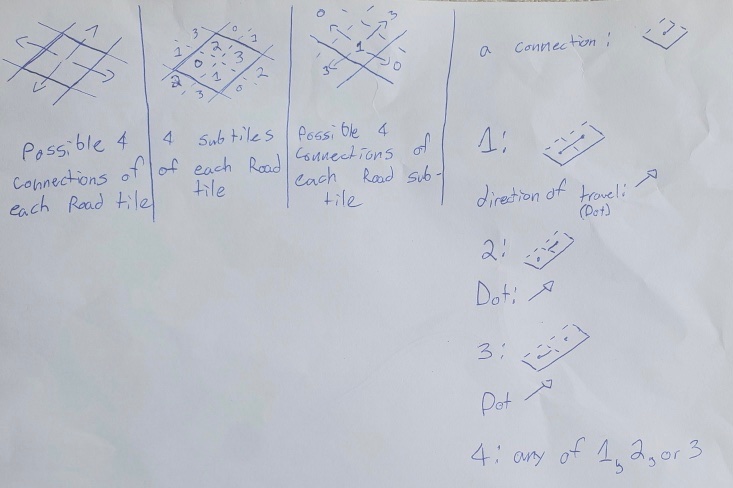 3 0 1
1 2
0 3
2 1 2
3 0
0 3
1
3 0
Possible 4
Connections of
each Road tile
4 subtiles
of each Road
tile
Possible 4
Connections of
each Road sub-
tile
a connection:
1:
direction of travel:
(Dot)
2:
Dot:
3:
Dot
4: any of 1, 2, or 3